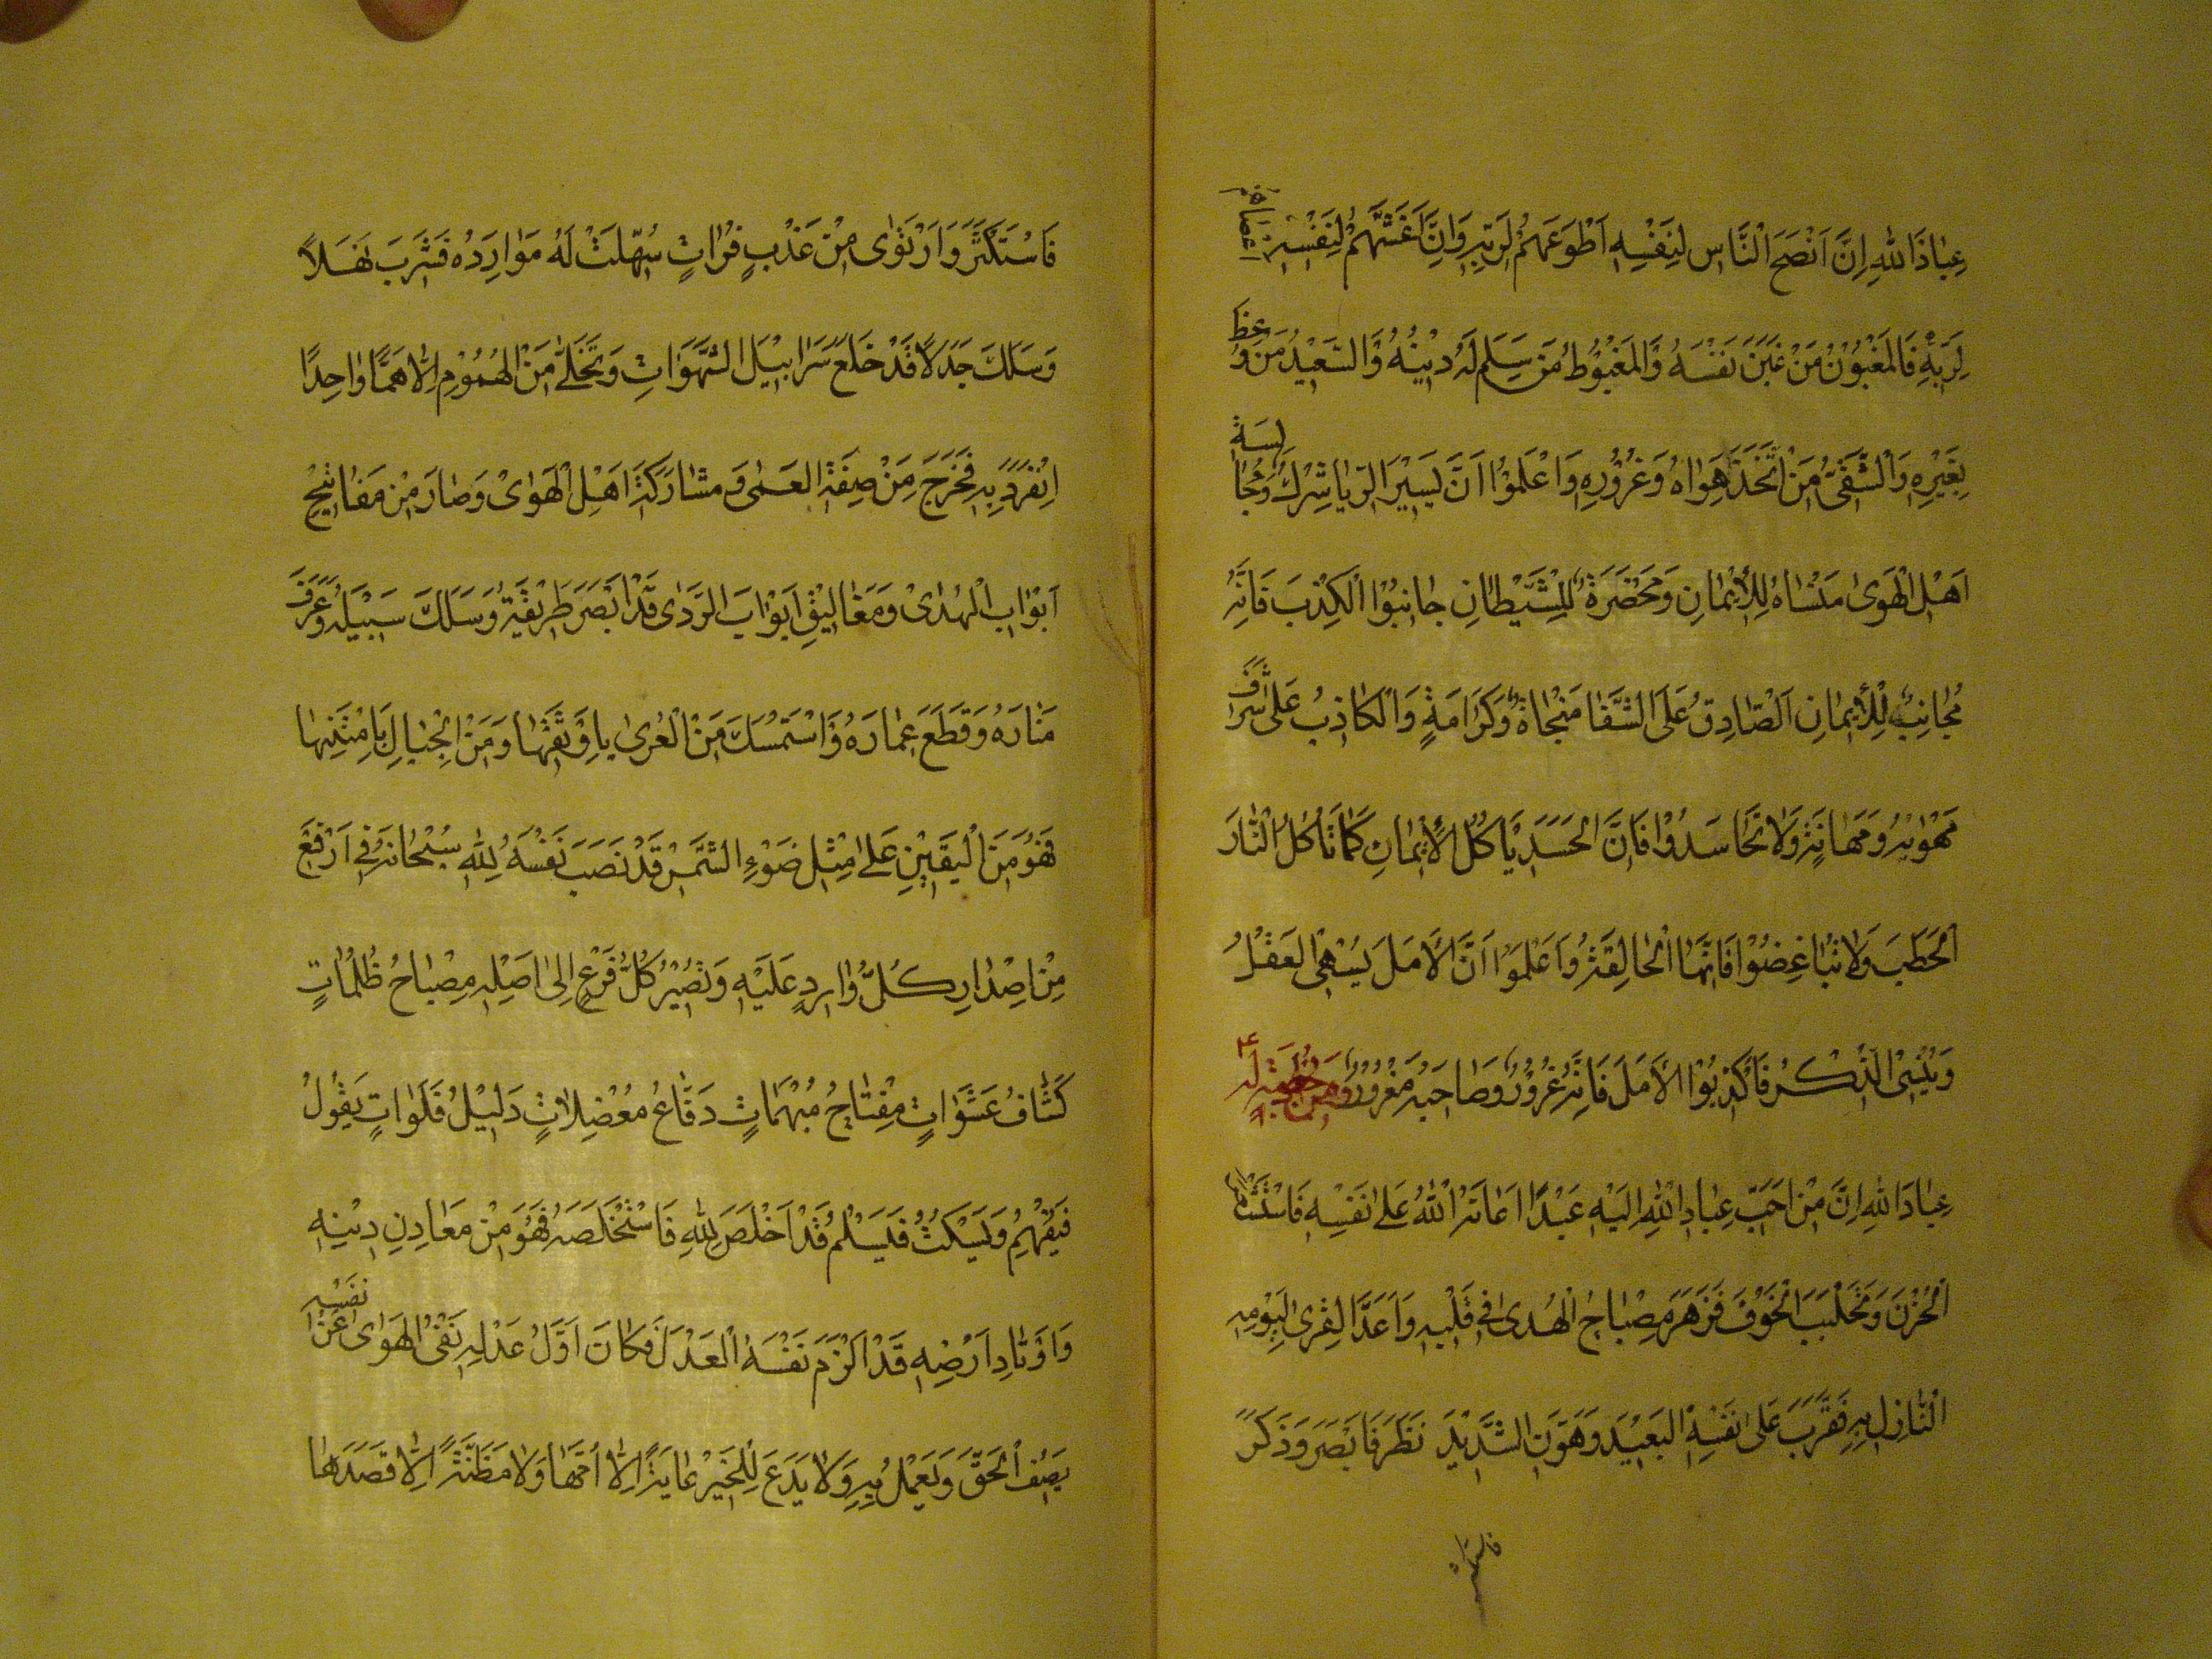 عِبَادَ اللهِ اِنَّ اَنْصَحَ النَّاسِ لِنَفْسِهِ اَطْوَعُهُمْ لِرَبِّهِ وَاِنَّ اَغَشَّهُمْ لِنَفْسِهِ اَعْصَاهُمْ
لِرَبِّهِ فَالْمَغْبُوْنُ مَنْ غَبَنَ نَفْسَهُ وَالْمَغْبُوْطُ مَنْ سَلِمَ لَهُ دِيْنُهُ وَالسَّعِيْدُ مَنْ وُعِظَ
بِغَيْرِهِ وَالشَّقِىُّ مَنِ انْخَدَعَ لِهَوَاهُ وَغُرُوْرِهِ وَاعْلَمُوْا اَنَّ يَسِيْرَ الرِّيَا شِرْكٌ وَمُجَالَسَةَ
اَهْلِ الْهَوَى مَنْسَاةٌ لِلْاِيْمَانِ وَمَحْضَرَةٌ لِلشَّيْطَانِ جَانِبُوْا الْكِذْبَ فَاِنَّهُ
مُجَانِبٌ لِلْاِيْمَانِ اَلصَّادِقُ عَلَى الشَّفَا مَنْجَاةٍ وَكَرَامَةٍ وَالْكَاذِبُ عَلَى شَرَفِ
مَهْوَاةٍ وَمَهَانَةٍ وَلَا تَحَاسَدُوْا فَاِنَّ الْحَسَدَ يَاْكُلُ الْاِيْمَانَ كَمَا تَاْكُلُ النَّارُ
الْحَطَبَ وَلَا تَبَاغَضُوْا فَاِنَّهَا الْحَالِقَةُ وَاعْلَمُوْا اَنَّ الْاَمَلَ يُسْهِى الْعَقْلَ
وَيُنْسِى الذِّكْرَ فَاَكْذِبُوْا الْاَمَلَ فَاِنَّهُ غُرُوْرٌ وَصَاحِبُهُ مَغْرُوْرٌ وَمِنْ خُطْبَةٍ لَهُ ع
عِبَادَ اللهِ اِنَّ مِنْ اَحَبِّ عِبَادِ اللهِ اِلَيْهِ عَبْدًا اَعَانَهُ اللهُ عَلَى نَفْسِهِ فَاسْتَشْعَرَ
الْحُزْنَ وَتَجَلْبَبَ الْخَوْفَ فَزَهَرَ مِصْبَاحُ الْهُدَى فِى قَلْبِهِ وَاَعَدَّ الْقِرَى لِيَوْمِهِ
النَّازِلِ بِهِ فَقَرَّبَ عَلَى نَفْسِهِ الْبَعِيْدَ وَهَوَّنَ الشَّدِيْدَ نَظَرَ فَاَبْصَرَ وَذَكَرَ
فاستكثر
فَاسْتَكْثَرَ وَارْتَوَى مِنْ عَذْبٍ فُرَاتٍ سُهِّلَتْ لَهُ مَوَارِدُهُ فَشَرِبَ نَهَلًا
وَسَلَكَ جَدَدًا قَدْ خَلَعَ سَرَابِيْلَ الشَّهَوَاتِ وَتَخَلَّى مِنَ الْهُمُوْمِ اِلَّا هَمًّا وَاحِدًا
اِنْفَرَدَ بِهِ فَخَرَجَ مِنْ صِفَةِ الْعَمَى وَمُشَارَكَةِ اَهْلِ الْهَوَىْ وَصَارَ مِنْ مَفَاتِيْحِ
اَبْوَابِ الْهُدَىْ وَمَغَالِيْقِ اَبْوَابِ الرَّدَى قَدْ اَبْصَرَ طَرِيْقَهُ وَسَلَكَ سَبِيْلَهُ وَعَرَفَ
مَنَارَهُ وَقَطَعَ غِمَارَهُ وَاسْتَمْسَكَ مِنَ الْعُرَى بِاَوْثَقِهَا وَمِنَ الْجِبَالِ بِاَمْتَنِهَا
فَهُوَ مِنَ الْيَقِيْنِ عَلَى مِثْلِ ضَوْءِ الشَّمْسِ قَدْ نَصَبَ نَفْسَهُ لِلّهِ سُبْحَانَهُ فِى اَرْفَعِ
مِنْ اِصْدَارِ كُلِّ وَارِدٍ عَلَيْهِ وَتَصْيِيْرِ كُلِّ فَرْعٍ اِلَى اَصْلِهِ مِصْبَاحُ ظُلُمَاتٍ
كَشَّافُ عَشَوَاتٍ مِفْتَاحُ مُبْهَمَاتٍ دَفَّاعُ مُعْضِلَاتٍ دَلِيْلُ فَلَوَاتٍ يَقُوْلُ
فَيُفْهِمُ وَيَسْكُتُ فَيَسْلَمُ قَدْ اَخْلَصَ لِلّهِ فَاسْتَخْلَصَهُ فَهُوَ مِنْ مَعَادِنِ دِيْنِهِ
وَاَوْتَادِ اَرْضِهِ قَدْ اَلْزَمَ نَفْسَهُ الْعَدْلَ فَكَانَ اَوَّلُ عَدْلِهِ نَفْىُ الْهَوَى عَنْ نَفْسِهِ
يَصِفُ الْحَقَّ وَيَعْمَلُ بِهِ وَلَا يَدَعُ لِلْخَيْرِ غَايَةً اِلَّا اَمَّهَا وَلَا مَظِنَّةً اِلَّا قَصَدَهَا